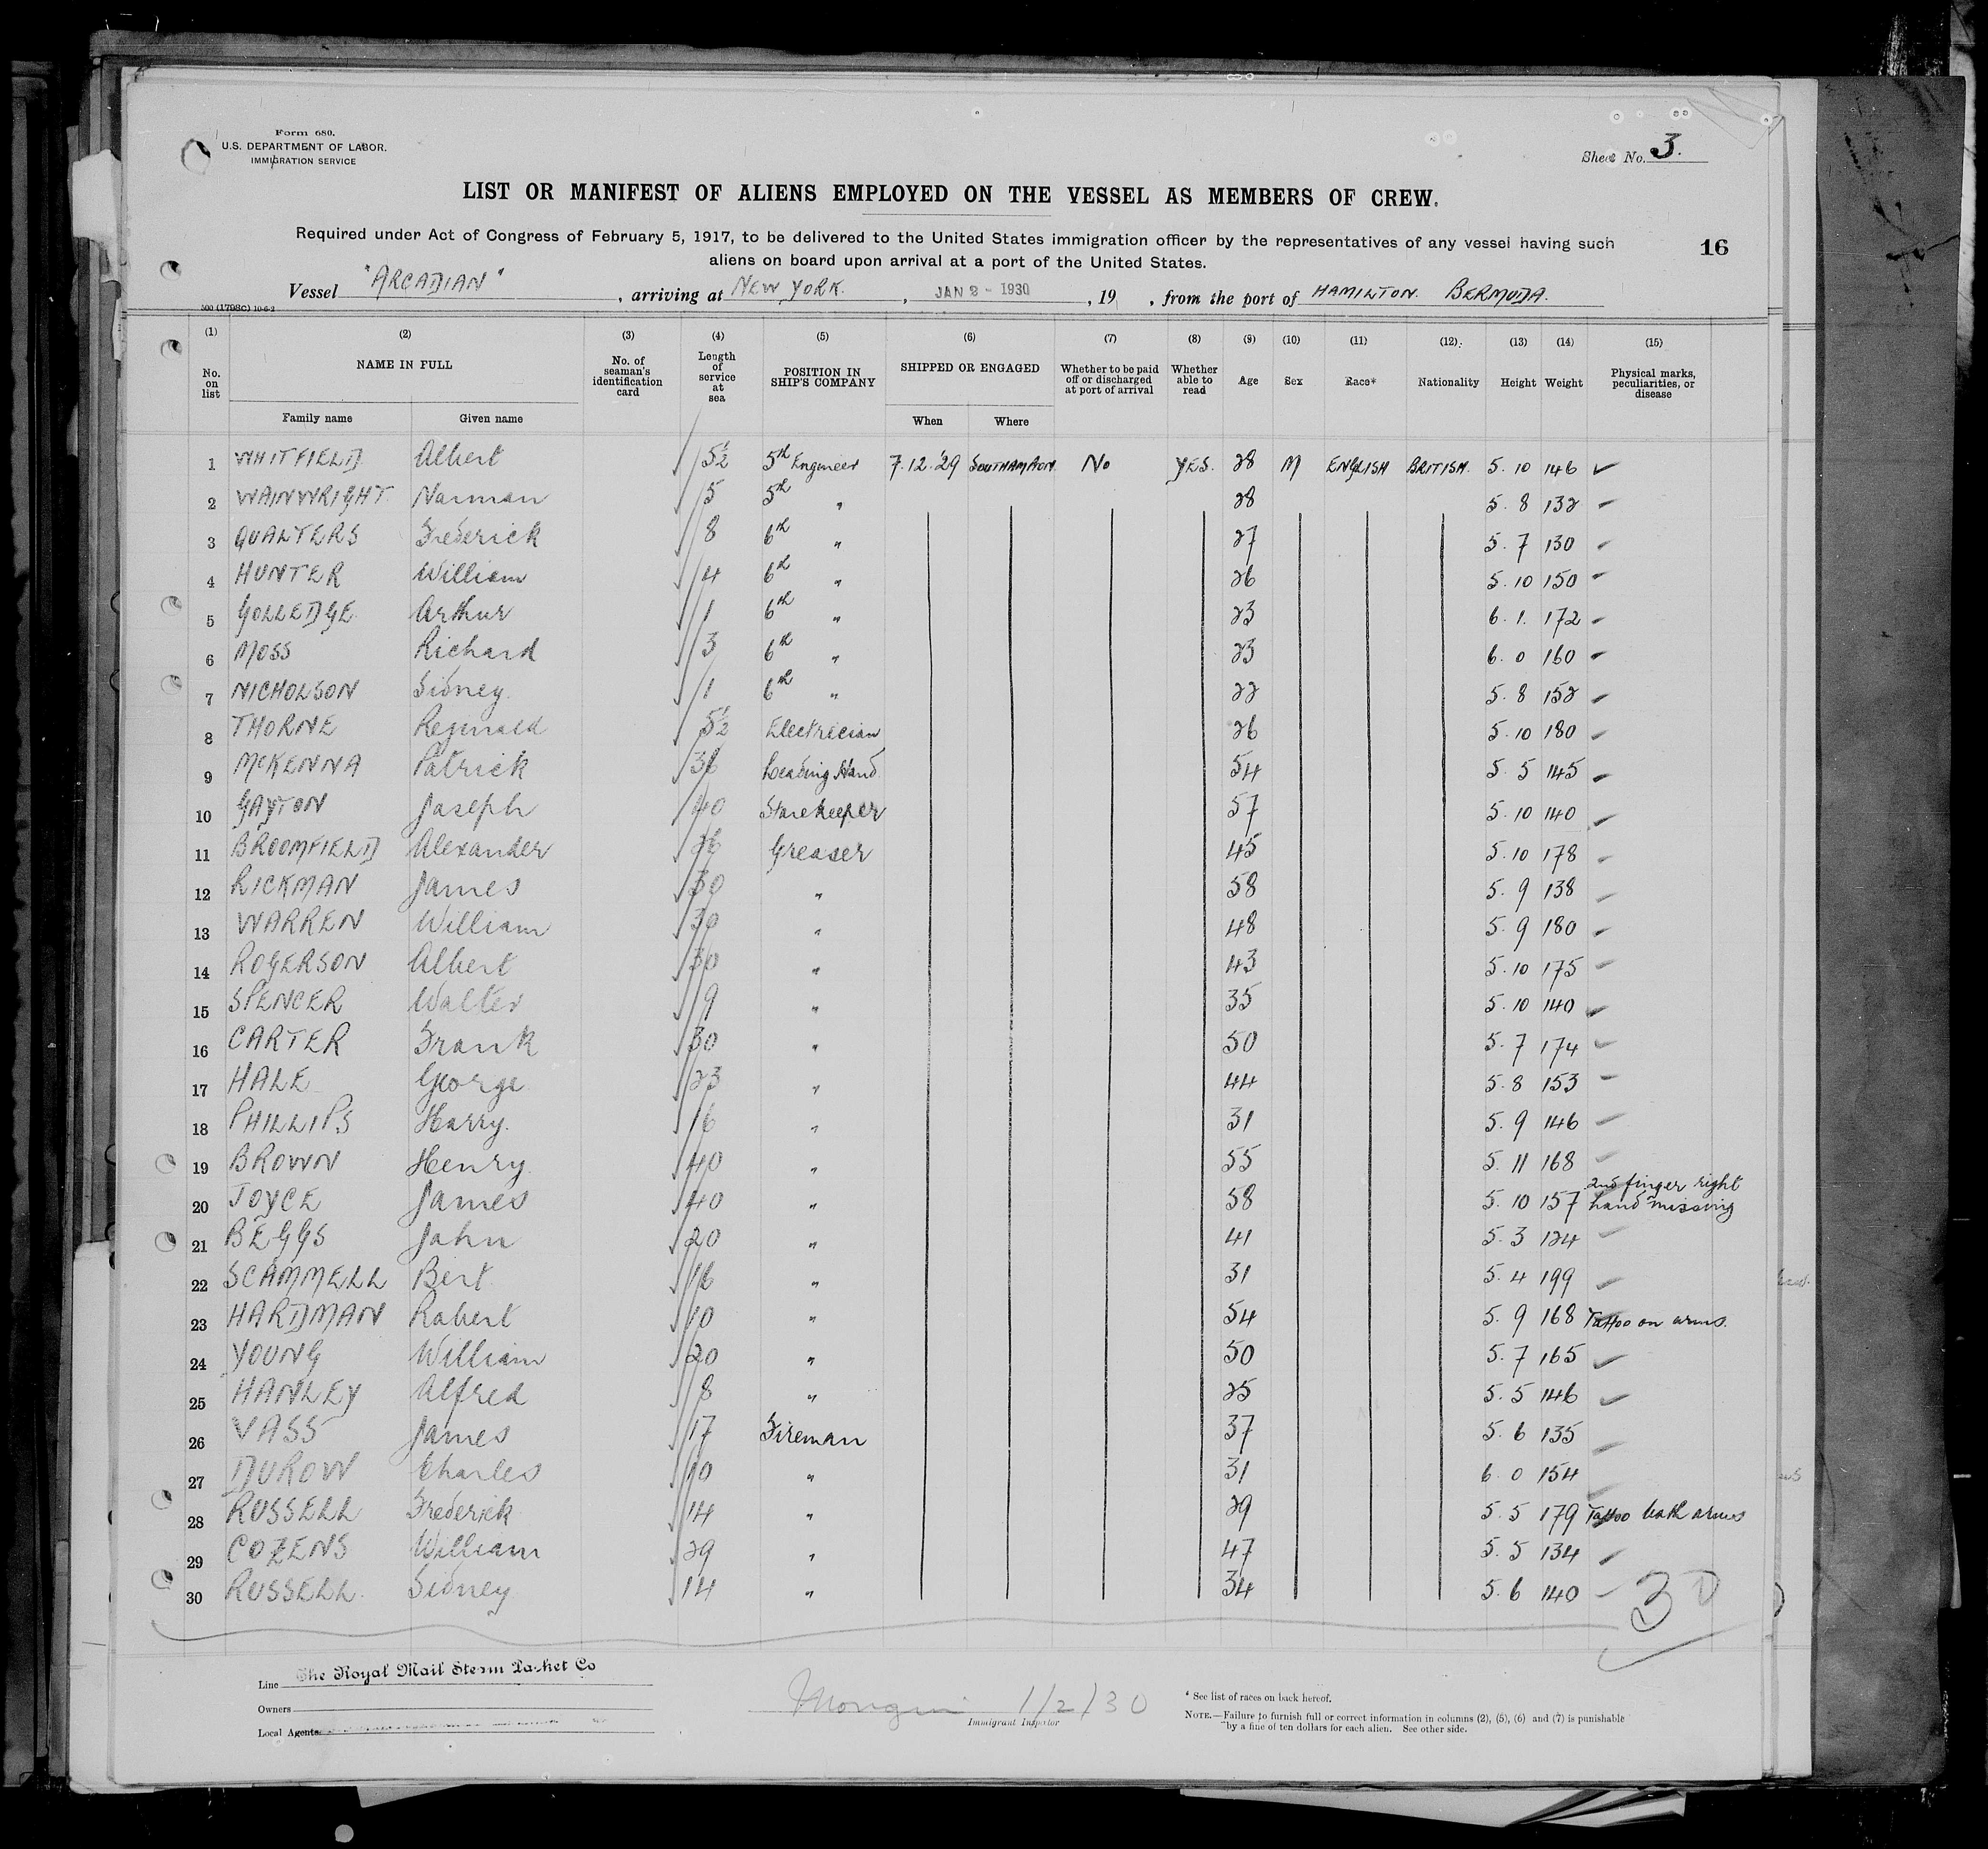 Form 680.
U.S. DEPARTMENT OF LABOR.
IMMIGRATION SERVICE
Sheet No. 3.
LIST OR MANIFEST OF ALIENS EMPLOYED ON THE VESSEL AS MEMBERS OF CREW.
Required under Act of Congress of February 5, 1917, to be delivered to the United States immigration officer by the representatives of any vessel having such
aliens on board upon arrival at a port of the United States.
16
Vessel "ARCADIAN", arriving at NEW YORK., JAN 2 - 1930, 19 , from the port of HAMILTON. BERMUDA.
500 (1798C) 10-6-2
(1) (2) (3) (4) (5) (6) (7) (8) (9) (10) (11) (12) (13) (14) (15)
No. on list NAME IN FULL Family name Given name No. of seaman's identification card Length of service at sea POSITION IN SHIP'S COMPANY SHIPPED OR ENGAGED When Where Whether to be paid off or discharged at port of arrival Whether able to read Age Sex Race* Nationality Height Weight Physical marks, peculiarities, or disease
1 WHITFIELD Albert 5½ 5th Engineer 7.12.'29 SOUTHAMPTON. No YES. 28 M ENGLISH BRITISH. 5. 10 146 ✓
2 WAINWRIGHT. Norman 5 5th " 28 5. 8 132
3 QUALTERS Frederick 8 6th " 27 5. 7 130
4 HUNTER William 4 6th " 26 5. 10 150
5 GOLLEDGE. Arthur 1 6th " 23 6. 1. 172
6 MOSS Richard 3 6th " 23 6. 0 160
7 NICHOLSON Sidney. 1 6th " 22 5. 8 152
8 THORNE Reginald 5½ Electrician 26 5. 10 180
9 McKENNA Patrick Leading Hand. 54 5. 5 145
10 GAYTON Joseph 40 Storekeeper 57 5. 10 140
11 BROOMFIELD Alexander 26 Greaser 45 5. 10 178
12 RICKMAN James 30 " 58 5. 9 138
13 WARREN William 30 " 48 5. 9 180
14 ROGERSON Albert 30 " 43 5. 10 175
15 SPENCER Walter 9 " 35 5. 10 140
16 CARTER Frank 30 " 50 5. 7 174
17 HALE George 23 " 44 5. 8 153
18 PHILLIPS Harry. 16 " 31 5. 9 146
19 BROWN Henry. 40 " 55 5. 11 168
20 JOYCE James 40 " 58 5. 10 157 2nd finger right hand missing
21 BEGGS John 20 " 41 5. 3 124
22 SCAMMELL Bert. 16 " 31 5. 4 199
23 HARDMAN Robert 10 " 54 5. 9 168 Tattoo on arms.
24 YOUNG William 20 " 50 5. 7 165
25 HANLEY Alfred 8 " 25 5. 5 146
26 VASS James 17 Fireman 37 5. 6 135
27 DUROW Charles 10 " 31 6. 0 154
28 RUSSELL Frederick 14 " 29 5. 5 179 Tattoo both arms
29 COZENS William 29 " 47 5. 5 134
30 RUSSELL. Sidney 14 " 34 5. 6 140
30
Line The Royal Mail Steam Packet Co
Owners
Local Agents
1/2/30
Immigrant Inspector
* See list of races on back hereof.
NOTE.—Failure to furnish full or correct information in columns (2), (5), (6) and (7) is punishable
by a fine of ten dollars for each alien. See other side.